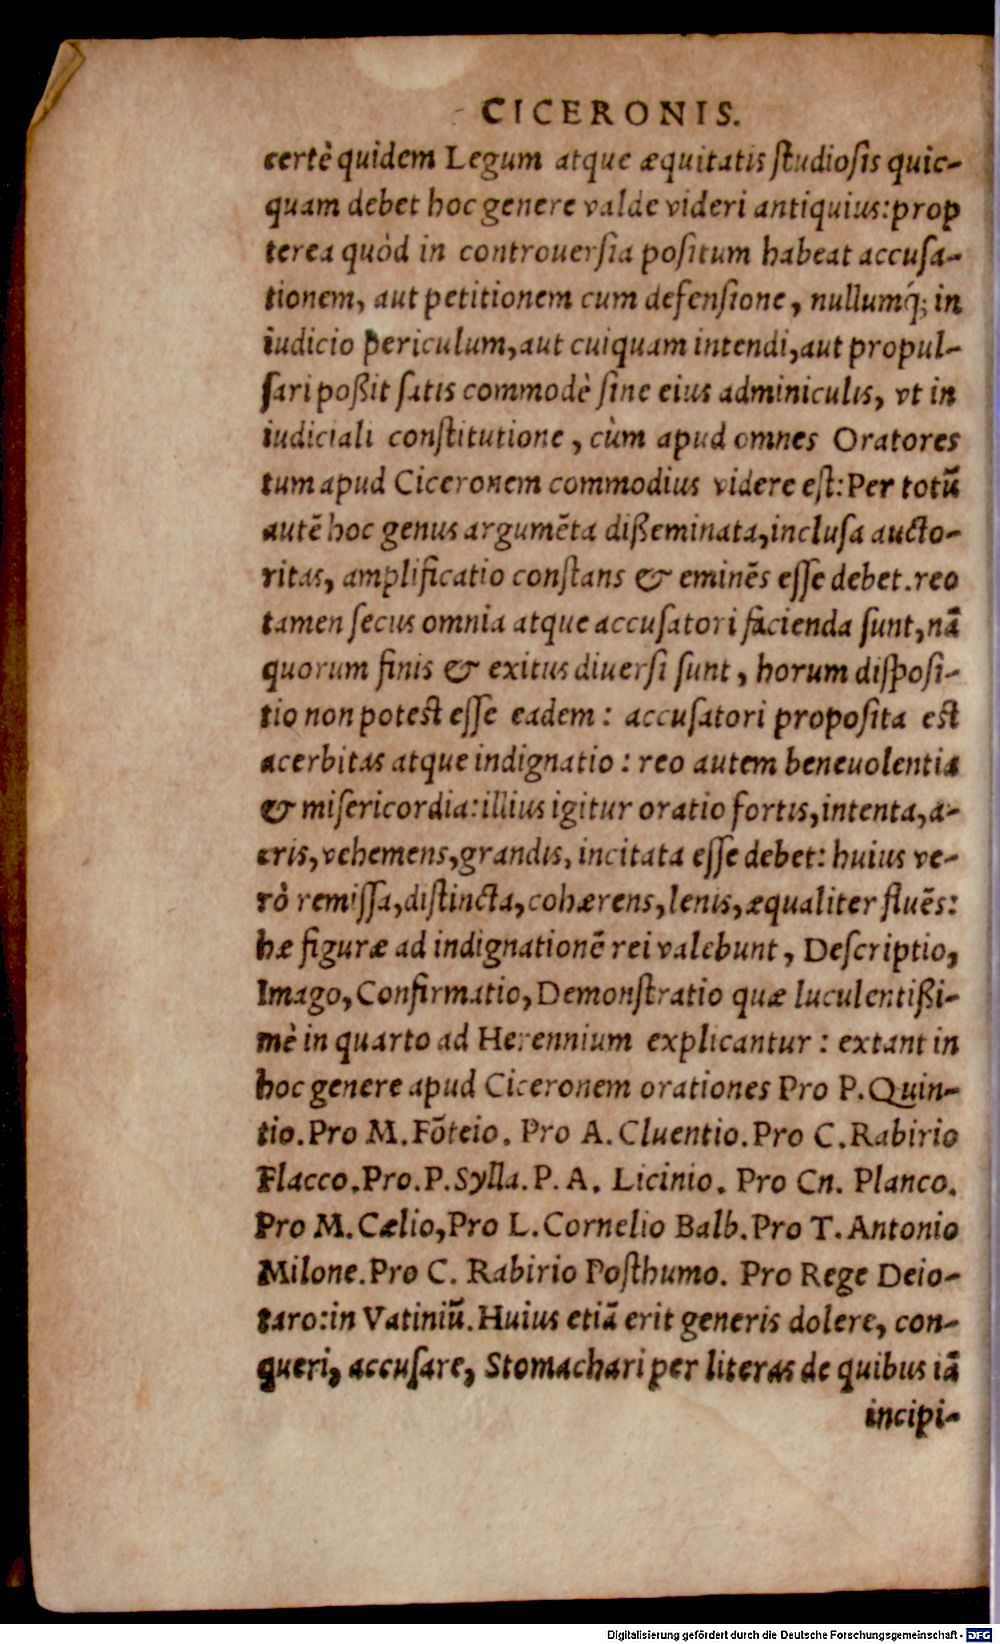 CICERONIS.
certè quidem Legum atque æquitatis studiosis quic-
quam debet hoc genere valde videri antiquius:prop
terea quòd in controuersia positum habeat accusa-
tionem, aut petitionem cum defensione, nullumq́; in
iudicio periculum,aut cuiquam intendi,aut propul-
sari poßit satis commodè sine eius adminiculis, vt in
iudiciali constitutione, cùm apud omnes Oratores
tum apud Ciceronem commodius videre est:Per totũ
autē hoc genus argumēta dißeminata,inclusa aucto-
ritas, amplificatio constans & eminēs esse debet.reo
tamen secus omnia atque accusatori facienda sunt,nã
quorum finis & exitus diuersi sunt, horum disposi-
tio non potest esse eadem: accusatori proposita est
acerbitas atque indignatio: reo autem beneuolentia
& misericordia:illius igitur oratio fortis,intenta,a-
cris,vehemens,grandis, incitata esse debet: huius ve-
rò remissa,distincta,cohærens,lenis,æqualiter fluēs:
hæ figuræ ad indignationē rei valebunt, Descriptio,
Imago,Confirmatio,Demonstratio quæ luculentißi-
mè in quarto ad Herennium explicantur: extant in
hoc genere apud Ciceronem orationes Pro P.Quin-
tio.Pro M.Fõteio. Pro A.Cluentio.Pro C.Rabirio
Flacco.Pro.P.Sylla.P.A. Licinio. Pro Cn. Planco.
Pro M.Cælio,Pro L.Cornelio Balb.Pro T.Antonio
Milone.Pro C. Rabirio Posthumo. Pro Rege Deio-
taro:in Vatiniũ.Huius etiã erit generis dolere, con-
queri, accusare, Stomachari per literas de quibus iã
incipi-
Digitalisierung gefördert durch die Deutsche Forschungsgemeinschaft - DFG